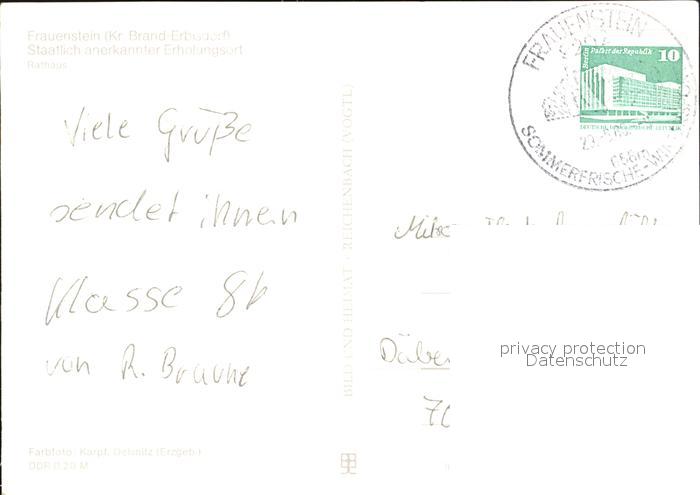 Frauenstein (Kr. Brand-Erbisdorf)
Staatlich anerkannter Erholungsort
Rathaus
Viele Grüße
sendet ihnen
Klasse 8b
von R. Braune
Farbfoto: Karpf, Oelsnitz (Erzgeb.)
DDR 0,20 M
BILD UND HEIMAT · REICHENBACH (VOGTL)
FRAUENSTEIN
SOMMERFRISCHE-WIN
Berlin Palast der Republik
10
DEUTSCHE DEMOKRATISCHE REPUBLIK
privacy protection
Datenschutz